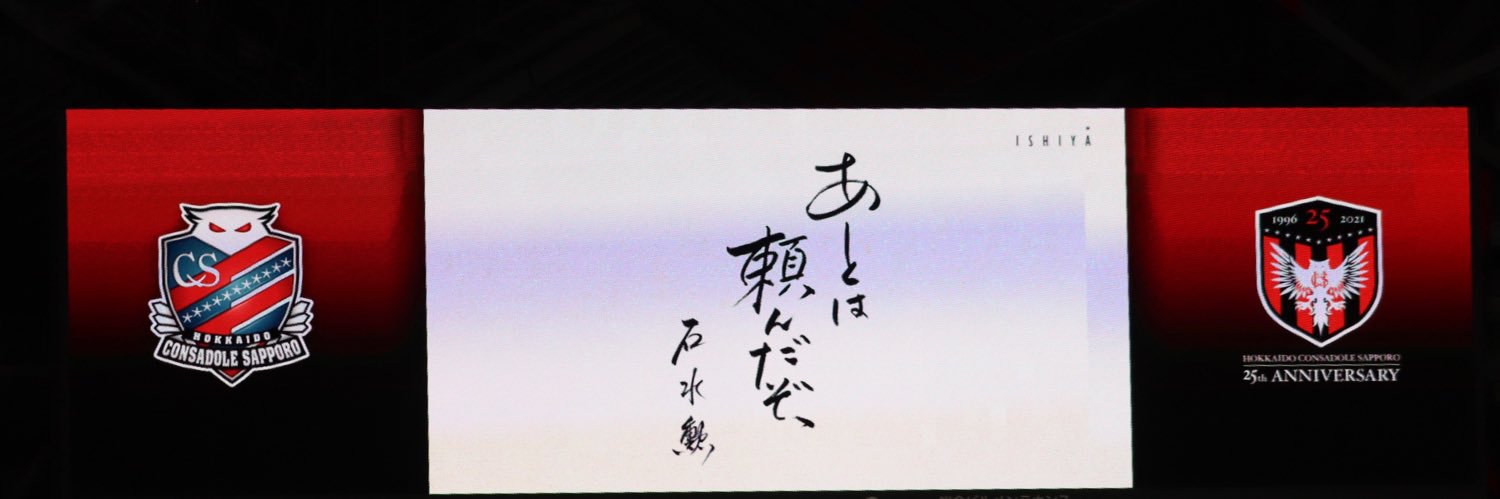 CS
HOKKAIDO
CONSADOLE SAPPORO
ISHIYA
あとは
頼んだぞ、
石水勲
1996 25 2021
HOKKAIDO CONSADOLE SAPPORO
25th ANNIVERSARY